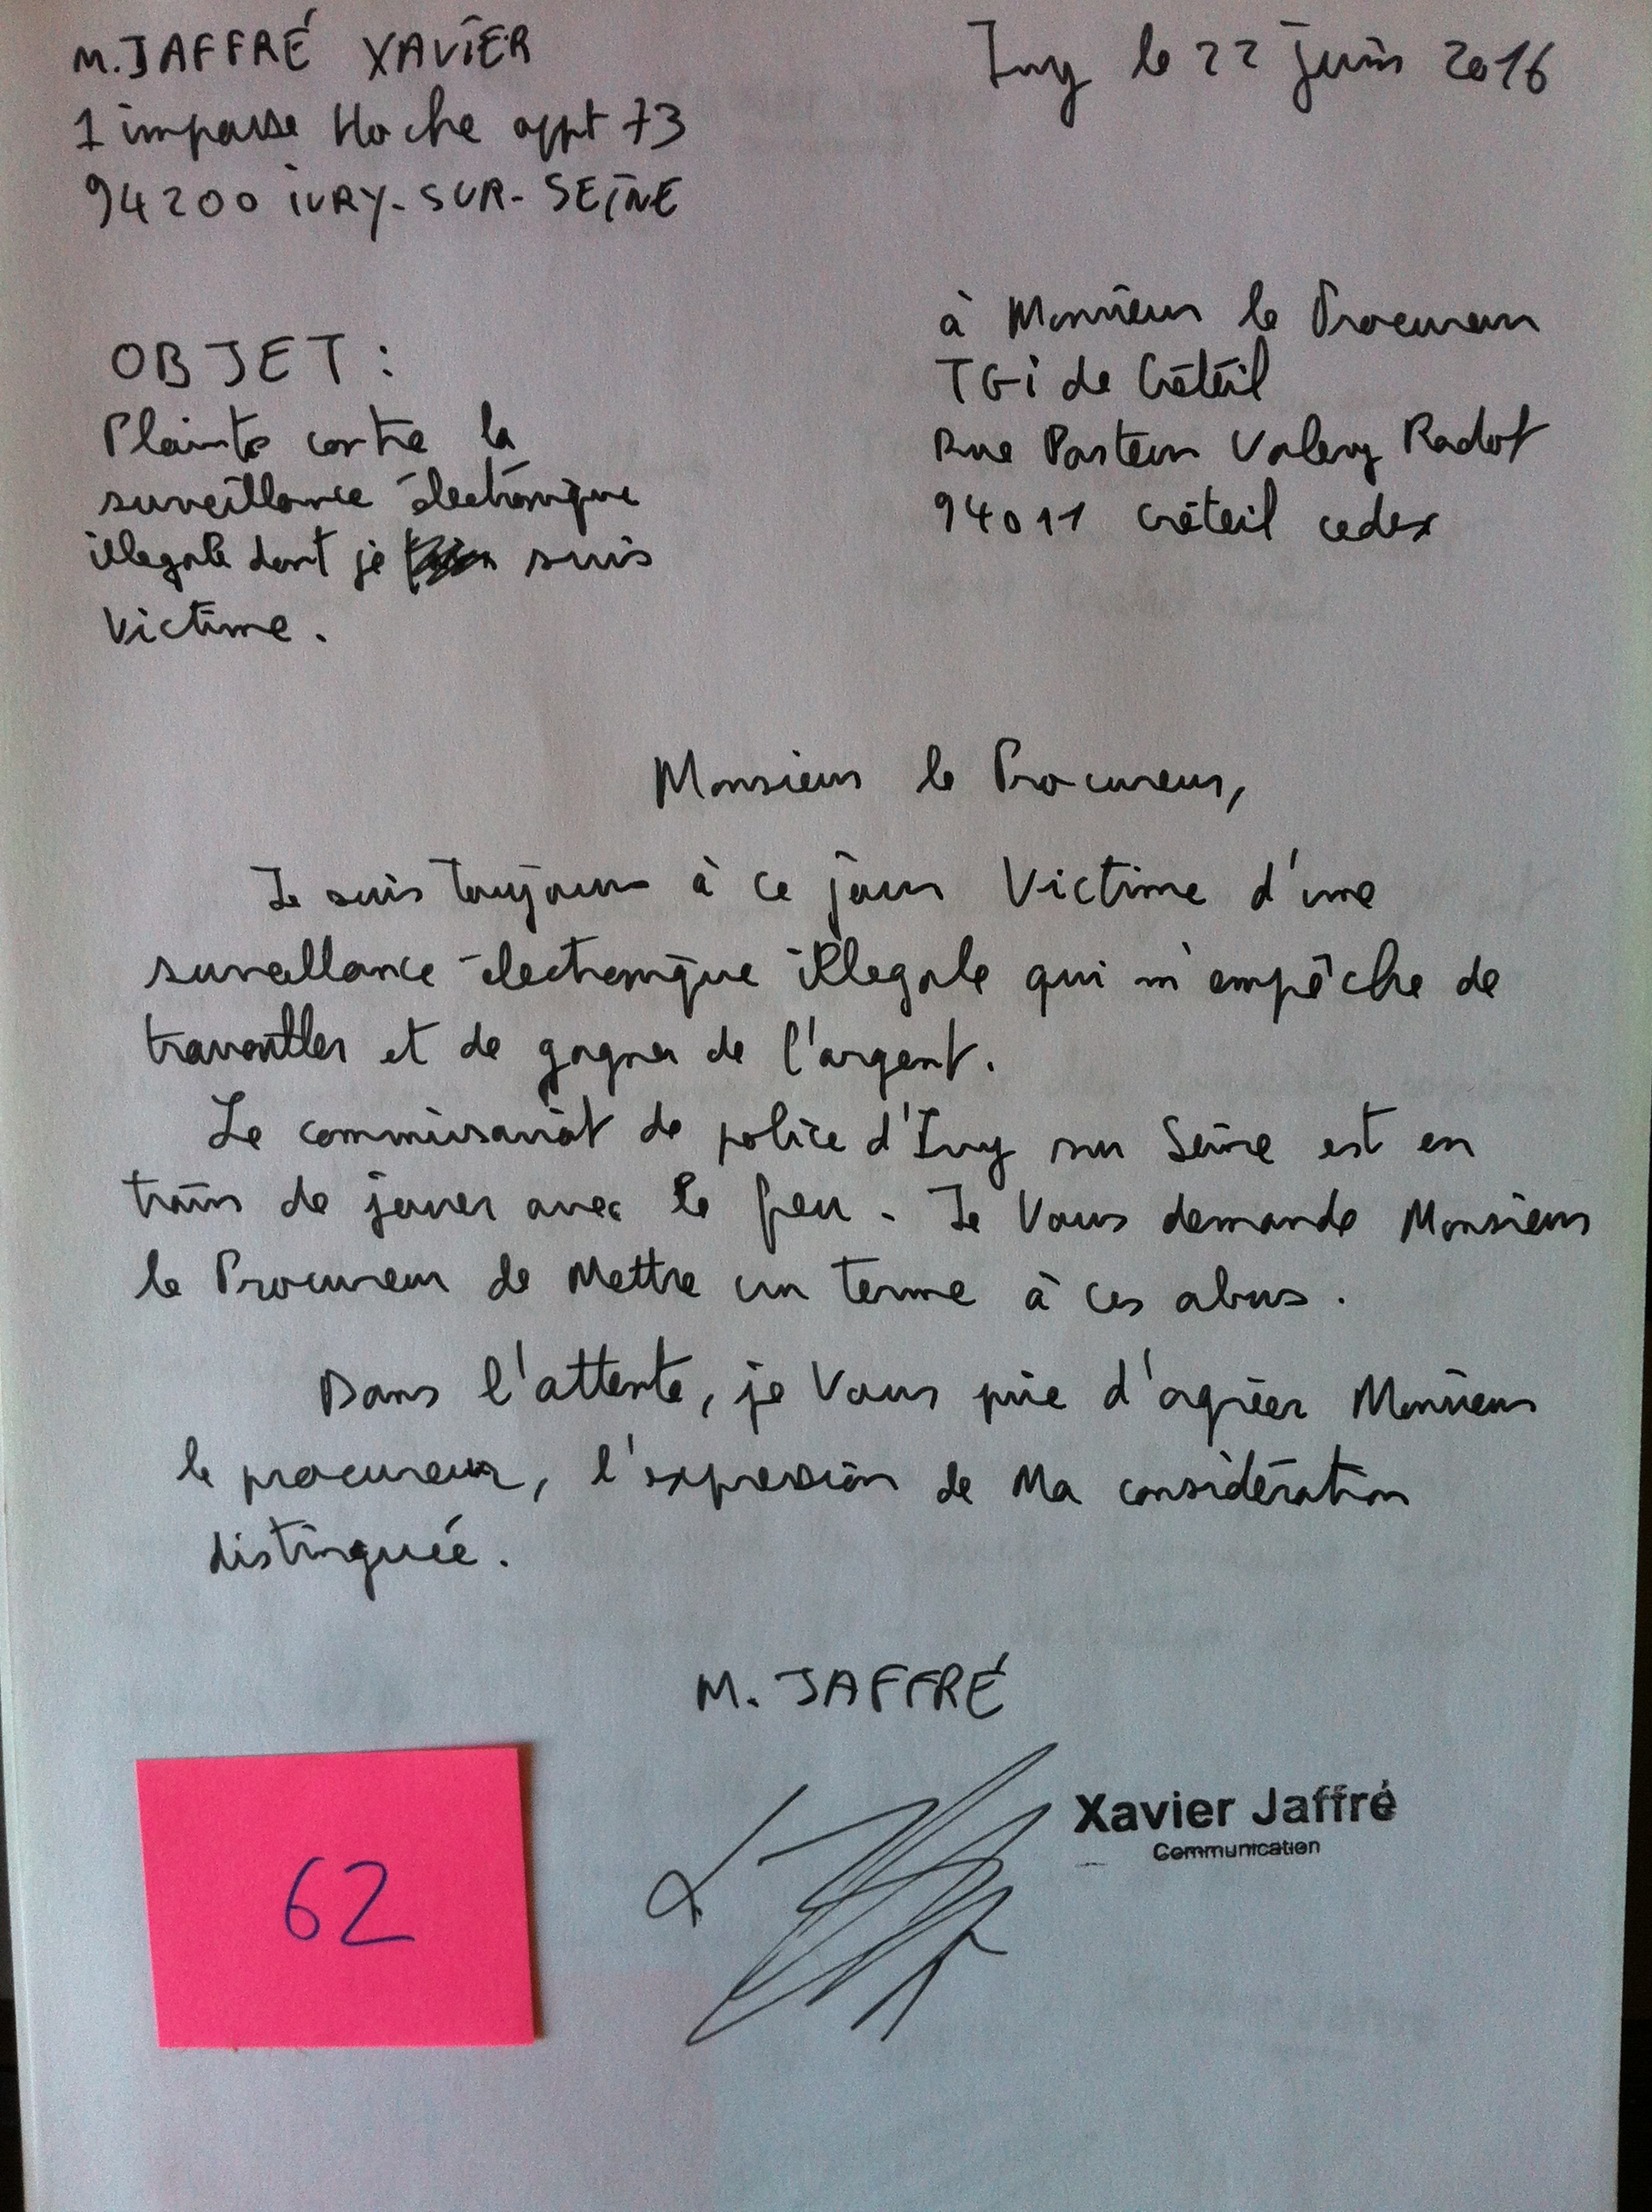 M. JAFFRÉ XAVIER
1 impasse Hoche appt 73
94200 IVRY-SUR-SEINE
Ivry le 22 juin 2016
à Monsieur le Procureur
TGI de Créteil
Rue Pasteur Valery Radot
94011 Créteil cedex
OBJET :
Plainte contre la
surveillance électronique
illegale dont je suis
victime.
Monsieur le Procureur,
Je suis toujours à ce jour victime d'une
surveillance électronique illegale qui m'empêche de
travailler et de gagner de l'argent.
Le commissariat de police d'Ivry sur Seine est en
train de jouer avec le feu. Je vous demande Monsieur
le Procureur de mettre un terme à ces abus.
Dans l'attente, je vous prie d'agréer Monsieur
le procureur, l'expression de ma considération
distinguée.
M. JAFFRÉ
Xavier Jaffré
Communication
62